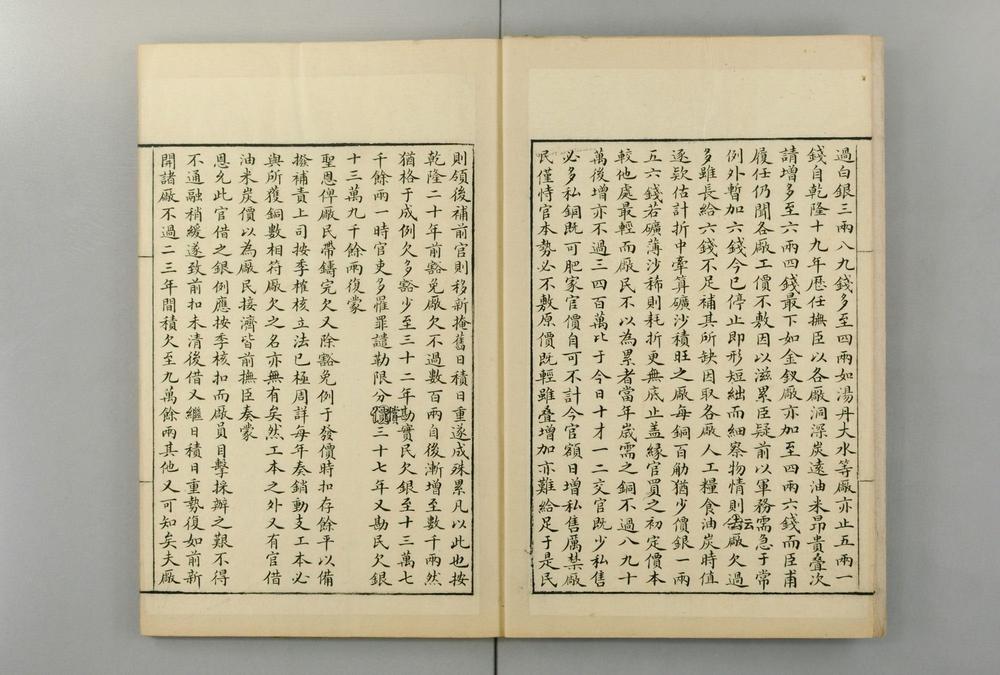 過白銀三兩八九錢多至四兩如湯丹大水等廠亦止五兩一
錢自乾隆十九年歷任撫臣以各廠洞深炭遠油米昂貴叠次
請增多至六兩四錢最下如金釵廠亦加至四兩六錢而臣甫
履任仍聞各廠工價不敷因以滋累臣疑前以軍務需急于常
例外暫加六錢今已停止即形短絀而細察物情則云廠欠過
多雖長給六錢不足補其所缺因取各廠人工糧食油炭時值
逐欵估計折中牽算礦沙積旺之廠每銅百觔猶少價銀一兩
五六錢若礦薄沙稀則耗折更無底止盖緣官買之初定價本
較他處最輕而廠民不以為累者當年歲需之銅不過八九十
萬後增亦不過三四百萬比于今日十才一二交官既少私售
必多私銅既可肥家官價自可不計今官額日增私售厲禁廠
民僅恃官本勢必不敷原價既輕雖叠增加亦難給足于是民
則領後補前官則移新掩舊日積日重遂成殊累凡以此也按
乾隆二十年前豁免廠欠不過數百兩自後漸增至數千兩然
猶格于成例欠多豁少至三十二年勘實民欠銀至十三萬七
千餘兩一時官吏多罹罪譴勒限分償三十七年又勘民欠銀
十三萬九千餘兩復蒙
聖恩俾廠民帶鑄完欠又除豁免例于發價時扣存餘平以備
撥補責上司按季榷核立法已極周詳每年奏銷動支工本必
與所獲銅數相符廠欠之名亦無有矣然工本之外又有官借
油米炭價以為廠民接濟皆前撫臣奏蒙
恩允此官借之銀例應按季核扣而廠員目擊採辦之艱不得
不通融稍緩遂致前扣未清後借又繼日積日重勢復如前新
開諸廠不過二三年間積欠至九萬餘兩其他又可知矣夫廠